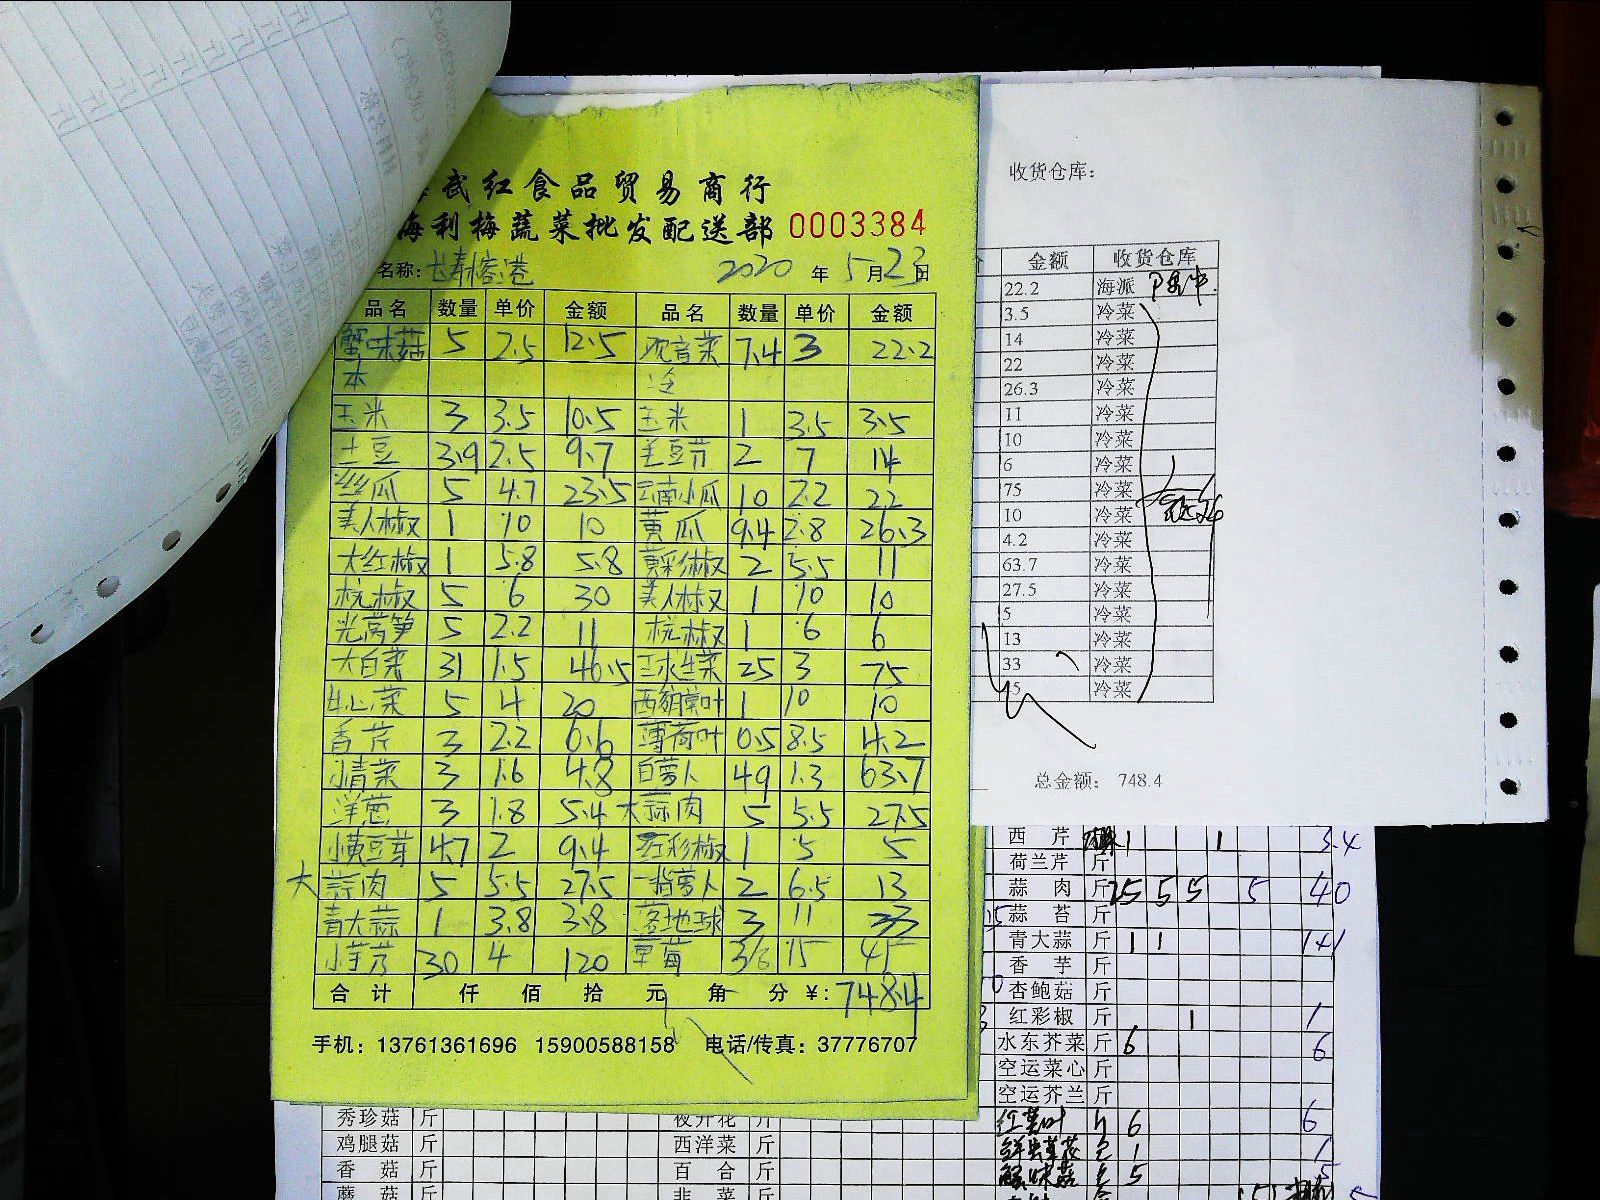 武红食品贸易商行
海利梅蔬菜批发配送部 0003384
名称: 2020 年 5 月 23 日
品名 数量 单价 金额 品名 数量 单价 金额
蟹味菇 5 2.5 12.5 7.4 3 22.2
本 冷
玉米 3 3.5 10.5 玉米 1 3.5 3.5
土豆 3.9 2.5 9.7 毛豆节 2 7 14
丝瓜 5 4.7 23.5 云南小瓜 10 2.2 22
美人椒 1 10 10 黄瓜 9.4 2.8 26.3
大红椒 1 5.8 5.8 黄彩椒 2 5.5 11
杭椒 5 6 30 美人椒 1 10 10
光莴笋 5 2.2 11 杭椒 1 6 6
大白菜 31 1.5 46.5 三水生菜 25 3 75
5 4 20 1 10 10
香芹 3 2.2 6.6 薄荷叶 0.5 8.5 4.2
小青菜 3 1.6 4.8 白萝卜 49 1.3 63.7
洋葱 3 1.8 5.4 大蒜肉 5 5.5 27.5
小黄豆芽 4.7 2 9.4 红彩椒 1 5 5
大蒜肉 5 5.5 27.5 萝卜 2 6.5 13
青大蒜 1 3.8 3.8 3 11 33
小芋艿 30 4 120 草莓 15 45
合计 仟 佰 拾 元 角 分 ¥: 748.4
手机: 13761361696 15900588158 电话/传真: 37776707
收货仓库:
金额 收货仓库
22.2 海派
3.5 冷菜
14 冷菜
22 冷菜
26.3 冷菜
11 冷菜
10 冷菜
6 冷菜
75 冷菜
10 冷菜
4.2 冷菜
63.7 冷菜
27.5 冷菜
5 冷菜
13 冷菜
33 冷菜
45 冷菜
总金额: 748.4
西芹 1 1 3.4
荷兰芹 斤
蒜肉 斤 25 5 5 5 40
蒜苔 斤
青大蒜 斤 1 1 1+1
香芋 斤
杏鲍菇 斤
红彩椒 斤 1 1
水东芥菜 斤 6 6
空运菜心 斤
空运芥兰 斤
6 6
1 1
蟹味菇 5 5
秀珍菇 斤 夜开花 斤
鸡腿菇 斤 西洋菜 斤
香菇 斤 百合 斤
蘑菇 斤 韭菜 斤